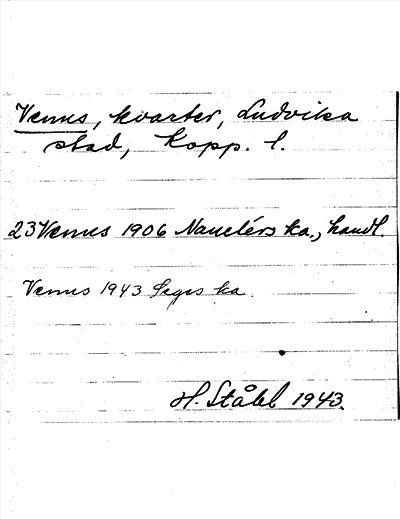 Venus, kvarter, Ludvika
stad, Kopp. l.
23 Venus 1906 Nauclérs ka., handl.
Venus 1943 Segis ka.
H. Ståhl 1943.